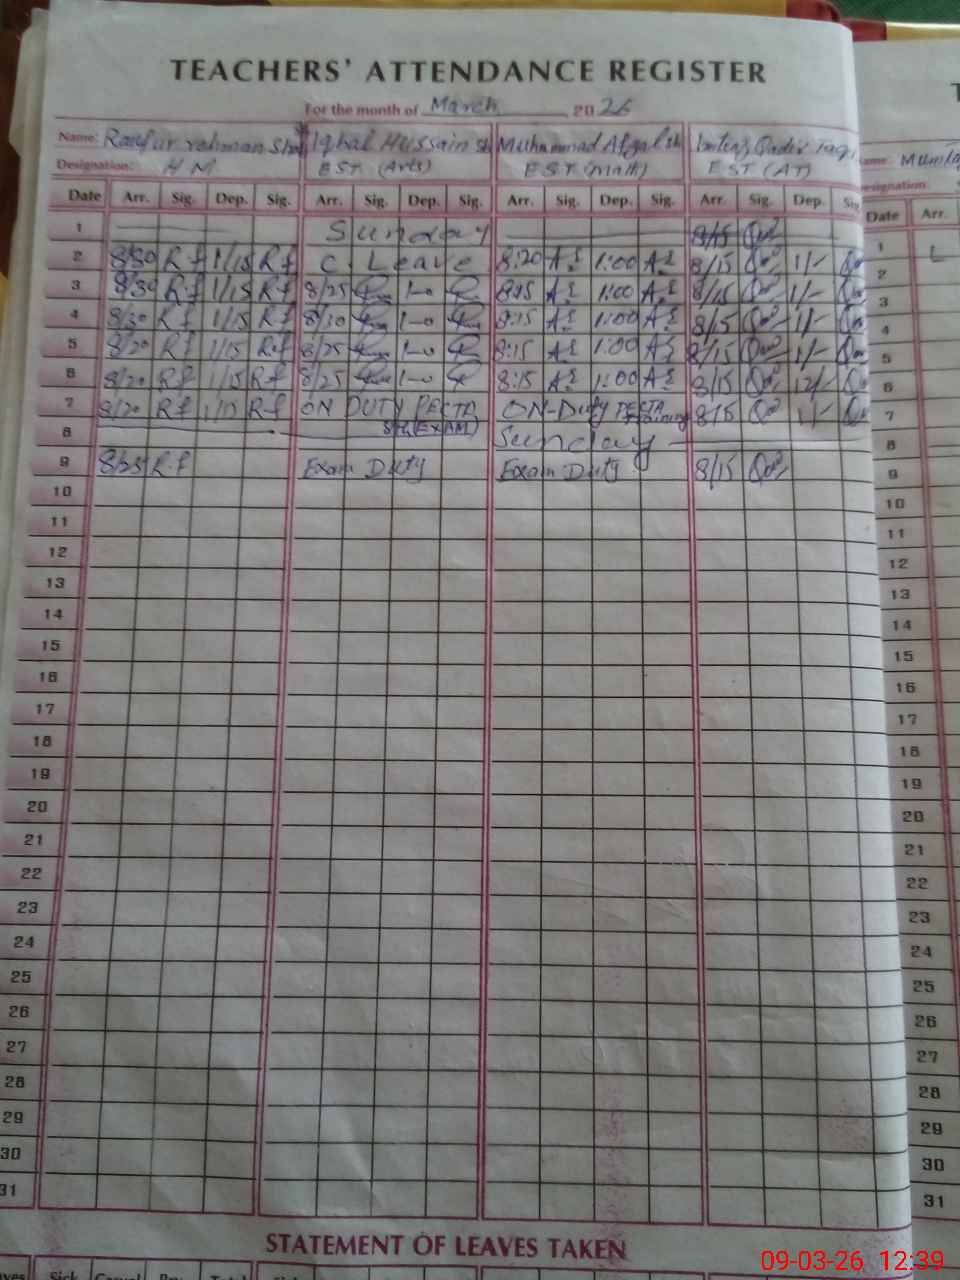 TEACHERS' ATTENDANCE REGISTER
For the month of March 2026
Name: Raufur rahman Iqbal Hussain Sh Muhammad Afzal Sh Imtiaz Qadir
Designation: HM EST (Arts) EST (Math) EST (AT)
Date Arr. Sig. Dep. Sig. Arr. Sig. Dep. Sig. Arr. Sig. Dep. Sig. Arr. Sig. Dep. Sig
1 Sunday 8/15
2 8/30 Rf 1/15 Rf C. Leave 8:20 1:00 8/15 1/-
3 8/30 Rf 1/15 Rf 8/25 1-0 8:15 1:00 8/15 1/-
4 8/30 Rf 1/15 Rf 8/30 1-0 8:15 1:00 8/15 1/-
5 8/20 Rf 1/15 Rf 8/25 1-0 8:15 1:00 8/15 1/-
6 8/20 Rf 1/15 Rf 8/25 1-0 8:15 1:00 8/15 12/-
7 8/20 Rf Rf ON DUTY PECTA ON-Duty PECTA Training 8/15 1/-
8 (EXAM) Sunday
9 8/25 Rf Exam Duty Exam Duty 8/15
10
11
12
13
14
15
16
17
18
19
20
21
22
23
24
25
26
27
28
29
30
31
STATEMENT OF LEAVES TAKEN
Sick
T
ame:
esignation:
Date Arr.
1 L
2
3
4
5
6
7
8
9
10
11
12
13
14
15
16
17
18
19
20
21
22
23
24
25
26
27
28
29
30
31
09-03-26 12:39